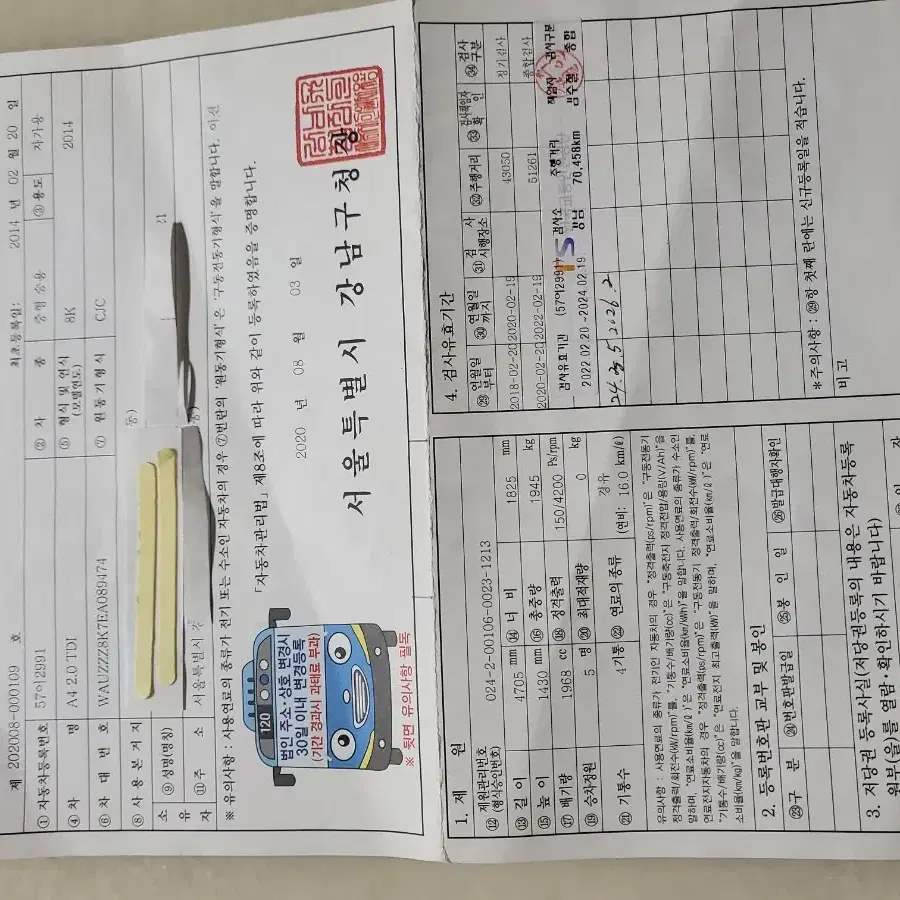 제 202008-000109 호
최초등록일: 2014 년 02 월 20 일
① 자동차등록번호 57어2991 ② 차 종 중형 승용 ③ 용도 자가용
④ 차 명 A4 2.0 TDI ⑤ 형식 및 연식 (모델연도) 8K 2014
⑥ 차 대 번 호 WAUZZZ8K7EA089474 ⑦ 원동기형식 CJC
⑧ 사 용 본 거 지
소 유 자 ⑨ 성명(명칭)
⑪ 주 소 서울특별시
※ 유의사항 : 사용연료의 종류가 전기 또는 수소인 자동차의 경우 ⑦번란의 '원동기형식'은 '구동전동기형식'을 말합니다. 이전
「자동차관리법」 제8조에 따라 위와 같이 등록하였음을 증명합니다.
2020 년 08 월 03 일
서울특별시 강남구청장
120
법인 주소·상호 변경시
30일 이내 변경등록
(기간 경과시 과태료 부과)
※ 뒷면 유의사항 필독
1. 제 원
⑫ 제원관리번호 (형식승인번호) 024-2-00106-0023-1213
⑬ 길 이 4705 mm ⑭ 너 비 1825 mm
⑮ 높 이 1430 mm ⑯ 총중량 1945 kg
⑰ 배기량 1968 cc ⑱ 정격출력 150/4200 Ps/rpm
⑲ 승차정원 5 명 ⑳ 최대적재량 0 kg
㉑ 기통수 4기통 ㉒ 연료의 종류 경유 (연비: 16.0 km/ℓ)
유의사항 : 사용연료의 종류가 전기인 자동차의 경우 "정격출력(ps/rpm)"은 "구동전동기
정격출력/회전수(kW/rpm)"를, "기통수/배기량(cc)"은 "구동축전지 정격전압/용량(V/Ah)"을
말하며, "연료소비율(km/ℓ)"은 "연료소비율(km/kWh)"을 말합니다. 사용연료의 종류가 수소인
연료전지자동차의 경우 "정격출력(ps/rpm)"은 "구동전동기 정격출력/회전수(kW/rpm)"를,
"기통수/배기량(cc)"은 "연료전지 최고출력(kW)"을 말하며, "연료소비율(km/ℓ)"은 "연료
소비율(km/kg)"을 말합니다.
2. 등록번호판 교부 및 봉인
㉓ 구 분 ㉔ 번호판발급일 ㉕ 봉 인 일 ㉖ 발급대행자확인
3. 저당권 등록사실(저당권등록의 내용은 자동차등록
원부(을)를 열람·확인하시기 바랍니다)
4. 검사유효기간
㉙ 연월일 부터 ㉚ 연월일 까지 ㉛ 검 사 시행장소 ㉜ 주행거리 ㉝ 검사책임자 확 인 ㉞ 검사 구분
2018-02-20 2020-02-19 43050 정기검사
2020-02-20 2022-02-19 51261 종합검사
검사유효기간 (57어2991) TS 검사소 주행거리 책임자 검사구분
2022.02.20 -2024.02.19 강남 70,458km 김수철 종합
*주의사항 : ㉙항 첫째 란에는 신규등록일을 적습니다.
비고